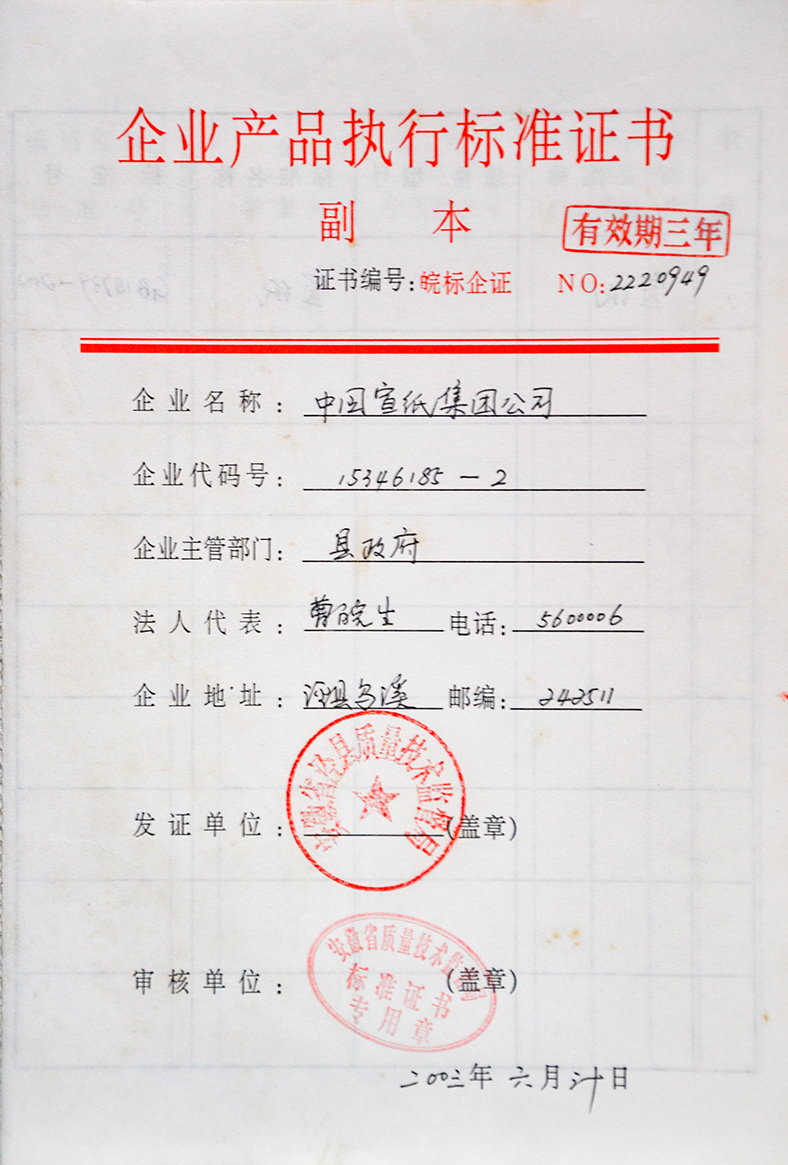 企业产品执行标准证书
副 本
有效期三年
证书编号:皖标企证 NO:2220949
企业名称: 中国宣纸集团公司
企业代码号: 15346185-2
企业主管部门: 县政府
法人代表: 曹皖生 电话: 5600006
企业地址: 泾县乌溪 邮编: 242511
安徽省泾县质量技术监督局
发证单位: (盖章)
安徽省质量技术监督局
标准证书
专用章
审核单位: (盖章)
二00三年 六月 日